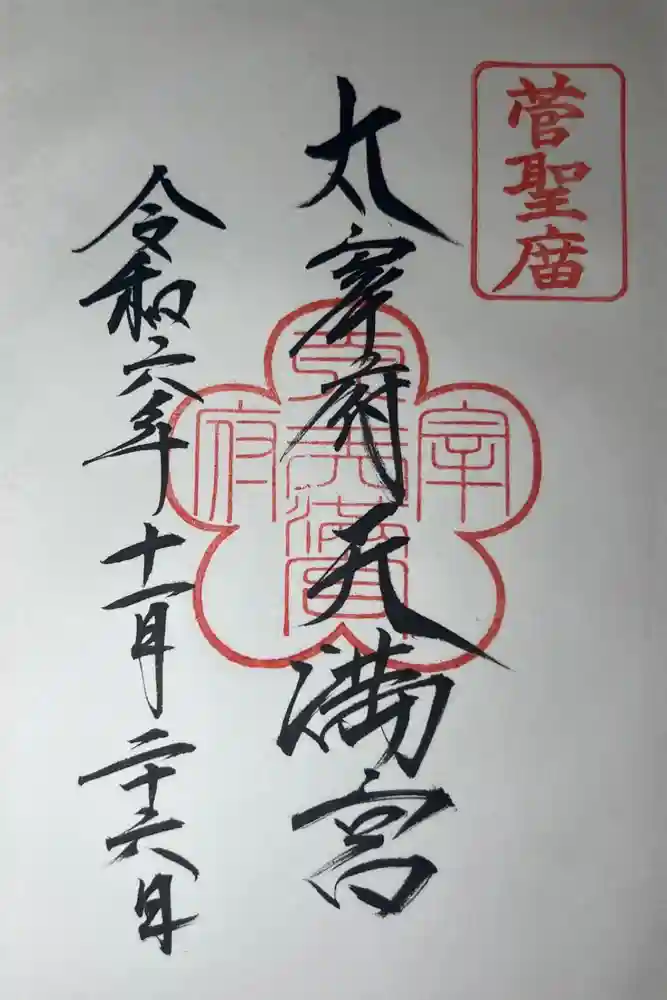 菅聖庿
太宰府天満宮
宰
府
天満宮
令和六年十一月二十六日